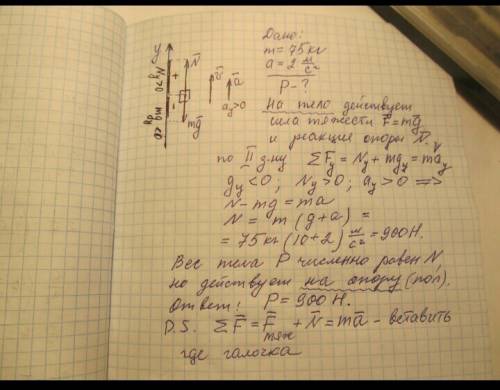 y
N̅
+
-
mg̅
v̅
a̅
a_y>0
Дано:
m = 75 кг
a = 2 м/с²
P - ?
На тело действует
сила тяжести F̅=mg̅
и реакция опоры N̅. V
по II з-ну ΣF_y = N_y + mg_y = ma_y
g_y < 0; N_y > 0; a_y > 0 =>
N - mg = ma
N = m (g + a) =
= 75 кг (10+2) м/с² = 900 Н.
Вес тела P численно равен N,
но действует на опору (пол).
Ответ: P = 900 Н.
P.S. ΣF̅ = F̅тяж + N̅ = ma̅ - вставить
где галочка